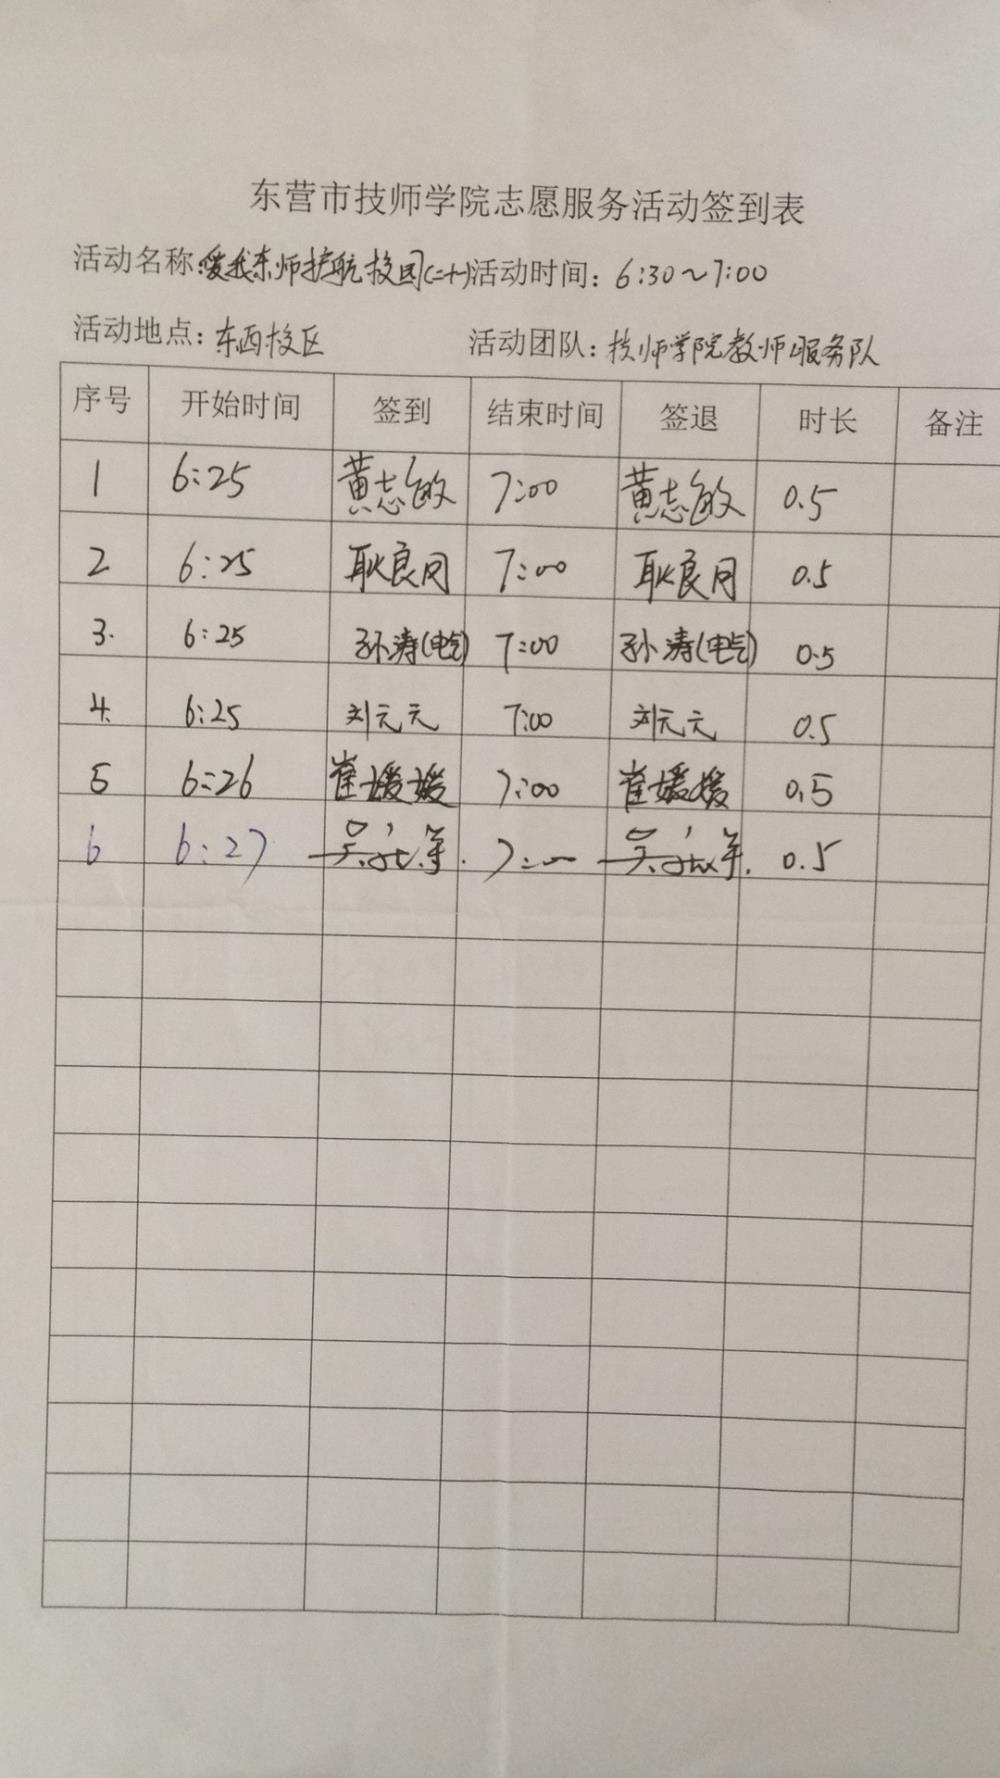 东营市技师学院志愿服务活动签到表
活动名称:爱我东师护航校园(二十)活动时间：6:30～7:00
活动地点：东西校区 活动团队：技师学院教师服务队
序号 开始时间 签到 结束时间 签退 时长 备注
1 6:25 黄志敏 7:00 黄志敏 0.5
2 6:25 耿良同 7:00 耿良同 0.5
3. 6:25 孙涛(电气) 7:00 孙涛(电气) 0.5
4. 6:25 刘元元 7:00 刘元元 0.5
5 6:26 崔媛媛 7:00 崔媛媛 0.5
6 6:27 7:00 0.5